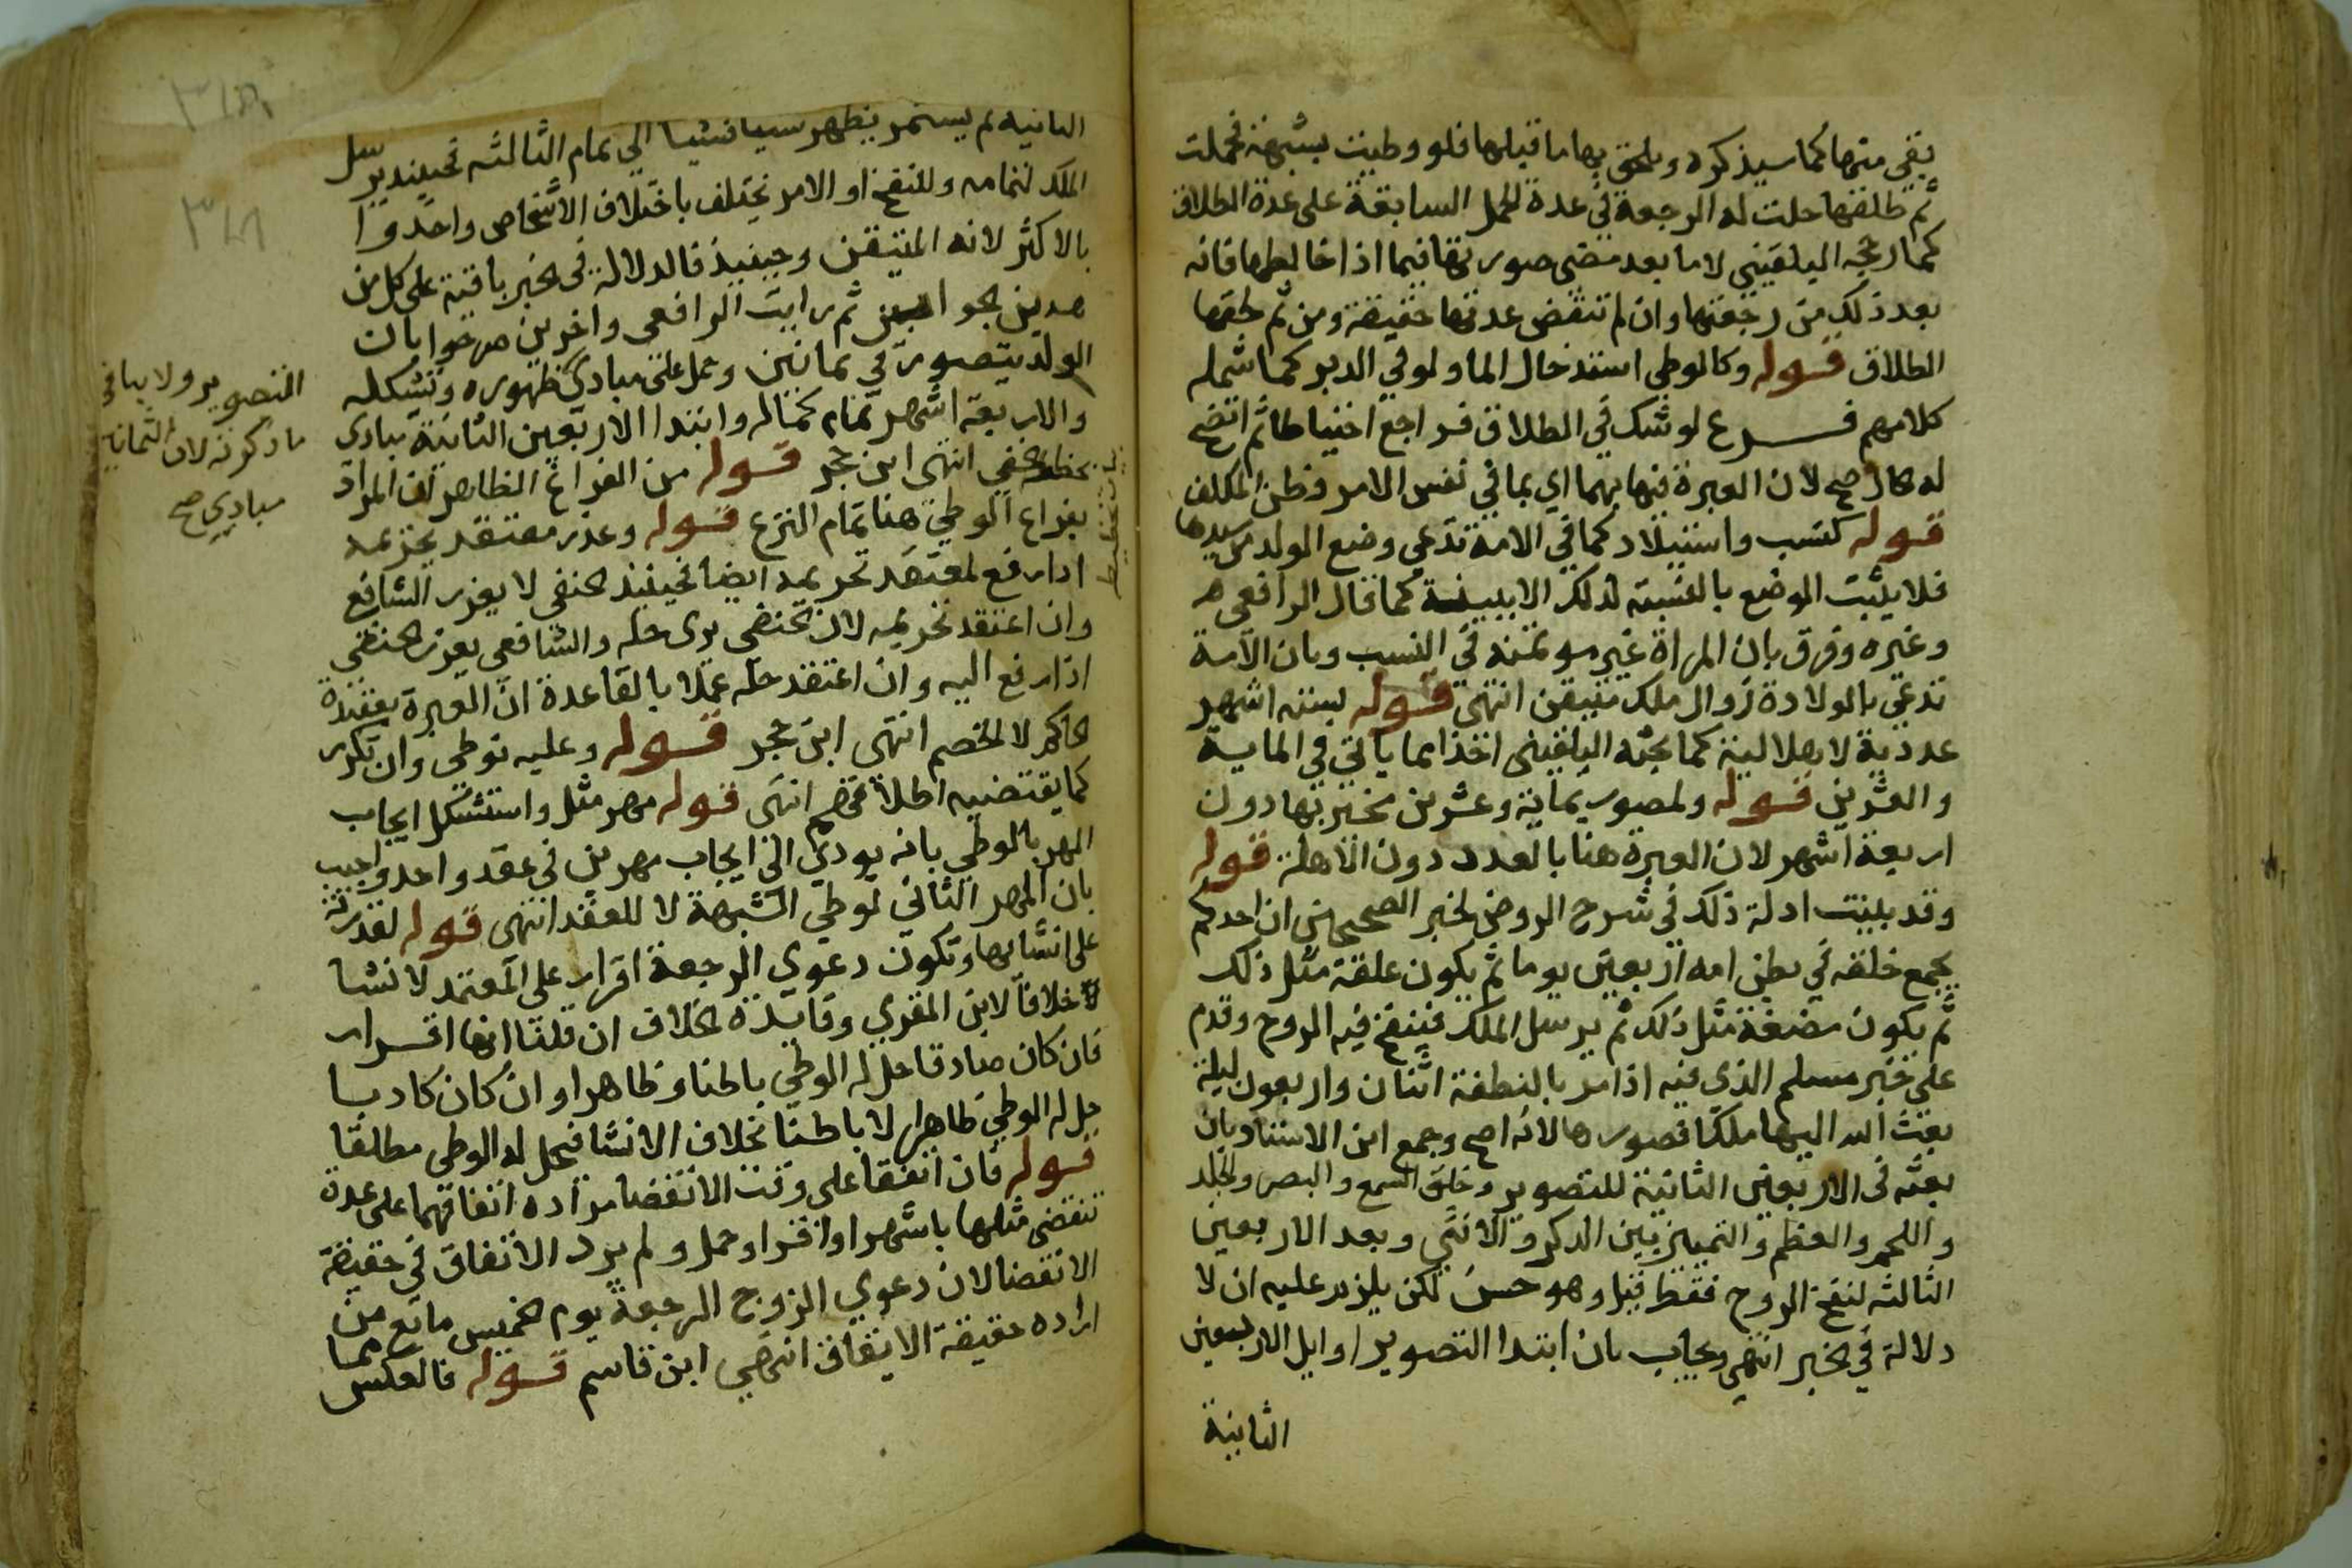 بقى منها كما سيذكره ويلحق بها ما قبلها فلو وطيت بشبهة فحملت
ثم طلقها حلت له الرجعة في عدة الحمل السابقة على عدة الطلاق
كما رجحه البلقيني لا ما بعد مضى صورتها فيما اذا خالطها فانه
بعد ذلك من رجعتها وان لم تنقض عدتها حقيقة ومن ثم لحقها
الطلاق قوله وكالوطي استدخال الما ولو في الدبر كما شمله
كلامهم فرع لو شك في الطلاق فراجع احتياطا ثم اتضح
له الحال صح لان العبرة فيها بهما اي بما في نفس الامر وظن المكلف
قوله كنسب واستيلاد كما في الامة تدعي وضع الولد من سيدها
فلا يثبت الوضع بالنسبة لذلك الا ببينة كما قال الرافعي
وغيره وفرق بان المراة غير موتمنة في النسب وبان الامة
تدعي بالولادة زوال ملك متيقن انتهى قوله لستة اشهر
عددية لا هلالية كما بحثه البلقيني اخذا مما ياتي في الماية
والعشرين قوله ولمصور بماية وعشرين مخبر بها دون
اربعة اشهر لان العبرة هنا بالعدد دون الاهلة قوله
وقد بينت ادلة ذلك في شرح الروض لخبر الصحيحين ان احدكم
يجمع خلقه في بطن امه اربعين يوما ثم يكون علقة مثل ذلك
ثم يكون مضغة مثل ذلك ثم يرسل الملك فينفخ فيه الروح وقدم
على خبر مسلم الذي فيه اذا مر بالنطفة اثنان واربعون ليلة
بعث الله اليها ملكا فصورها لانه اصح وجمع ابن الاستاد بان
بعثه في الاربعين الثانية للتصوير وخلق السمع والبصر والجلد
واللحم والعظم والتمييز بين الذكر والانثى وبعد الاربعين
الثالثه لنفخ الروح فقط قيل وهو حسن لكن يلزم عليه ان لا
دلالة في الخبر انتهى ويجاب بان ابتدا التصوير اوايل الاربعين
الثانية
الثانيه ثم يستمر يظهر شيا فشيا الى تمام الثالثه فحينيذ يرسل
الملك لتمامه وللنفخ او الامر يختلف باختلاف الاشخاص واخذوا
بالاكثر لانه المتيقن وحينيذ فالدلالة في الخبر باقية على كل من
هذين الجوابين ثم رايت الرافعي واخرين صرحوا بان
الولد يتصور في ثمانين وحمل على مبادي ظهوره وتشكله
والاربعة اشهر تمام كماله وابتدا الاربعين الثانية مبادى
تخطيط خفي انتهى ابن حجر قوله من الفراغ الظاهر ان المراد
بفراغ الوطي هنا تمام النزع قوله وعذر معتقد تحريمه
اذا رفع لمعتقد تحريمه ايضا فحينيذ الحنفي لا يعزر الشافع
وان اعتقد تحريمه لان الحنفي يرى حله والشافعي يعزر الحنفي
اذا رفع اليه وان اعتقد حله عملا بالقاعدة ان العبرة بعقيدة
الحاكم لا الخصم انتهى ابن حجر قوله وعليه بوطي وان تكرر
كما يقتضيه اطلاقهم انتهى قوله مهر مثل واستشكل ايجاب
المهر بالوطي بانه يودي الى ايجاب مهرين في عقد واحد واجيب
بان المهر الثاني لوطي الشبهة لا للعقد انتهى قوله لقدرته
على انشائها وتكون دعوى الرجعة اقرار على المعتمد لا نشا
خلافا لابن المقري وفايدة الخلاف ان قلنا انها اقرار
فان كان صادقا حل له الوطي باطنا وظاهرا وان كان كاذبا
حل له الوطي ظاهرا لا باطنا بخلاف الانشا فيحل له الوطي مطلقا
قوله فان اتفقا على وقت الانقضا مراده اتفاقهما على عدة
تنقضي مثلها باشهر او اقرا او حمل ولم يرد الاتفاق في حقيقة
الانقضا لان دعوى الزوج الرجعة يوم الخميس مانع من
ارادة حقيقة الاتفاق انتهى ابن قاسم قوله فالعكس مما
التصوير ولا ينافي
ما ذكرته لان الثمانين
مبادي صح